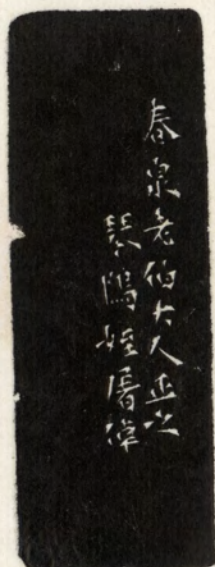 春泉老伯大人正之
琴隖姪屠倬